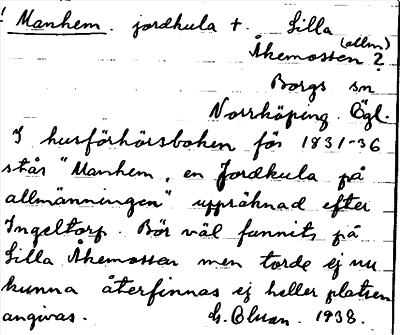 ! Manhem. jordkula +. Lilla
(allm)
Åkemossen ?
Borgs sn
Norrköping. Ögl.
I husförhörsboken för 1831-36
står "Manhem, en Jordkula på
allmänningen" uppräknad efter
Ingeltorp. Bör väl funnits på
Lilla Åkemossen men torde ej nu
kunna återfinnas ej heller platsen
angivas. 1938.